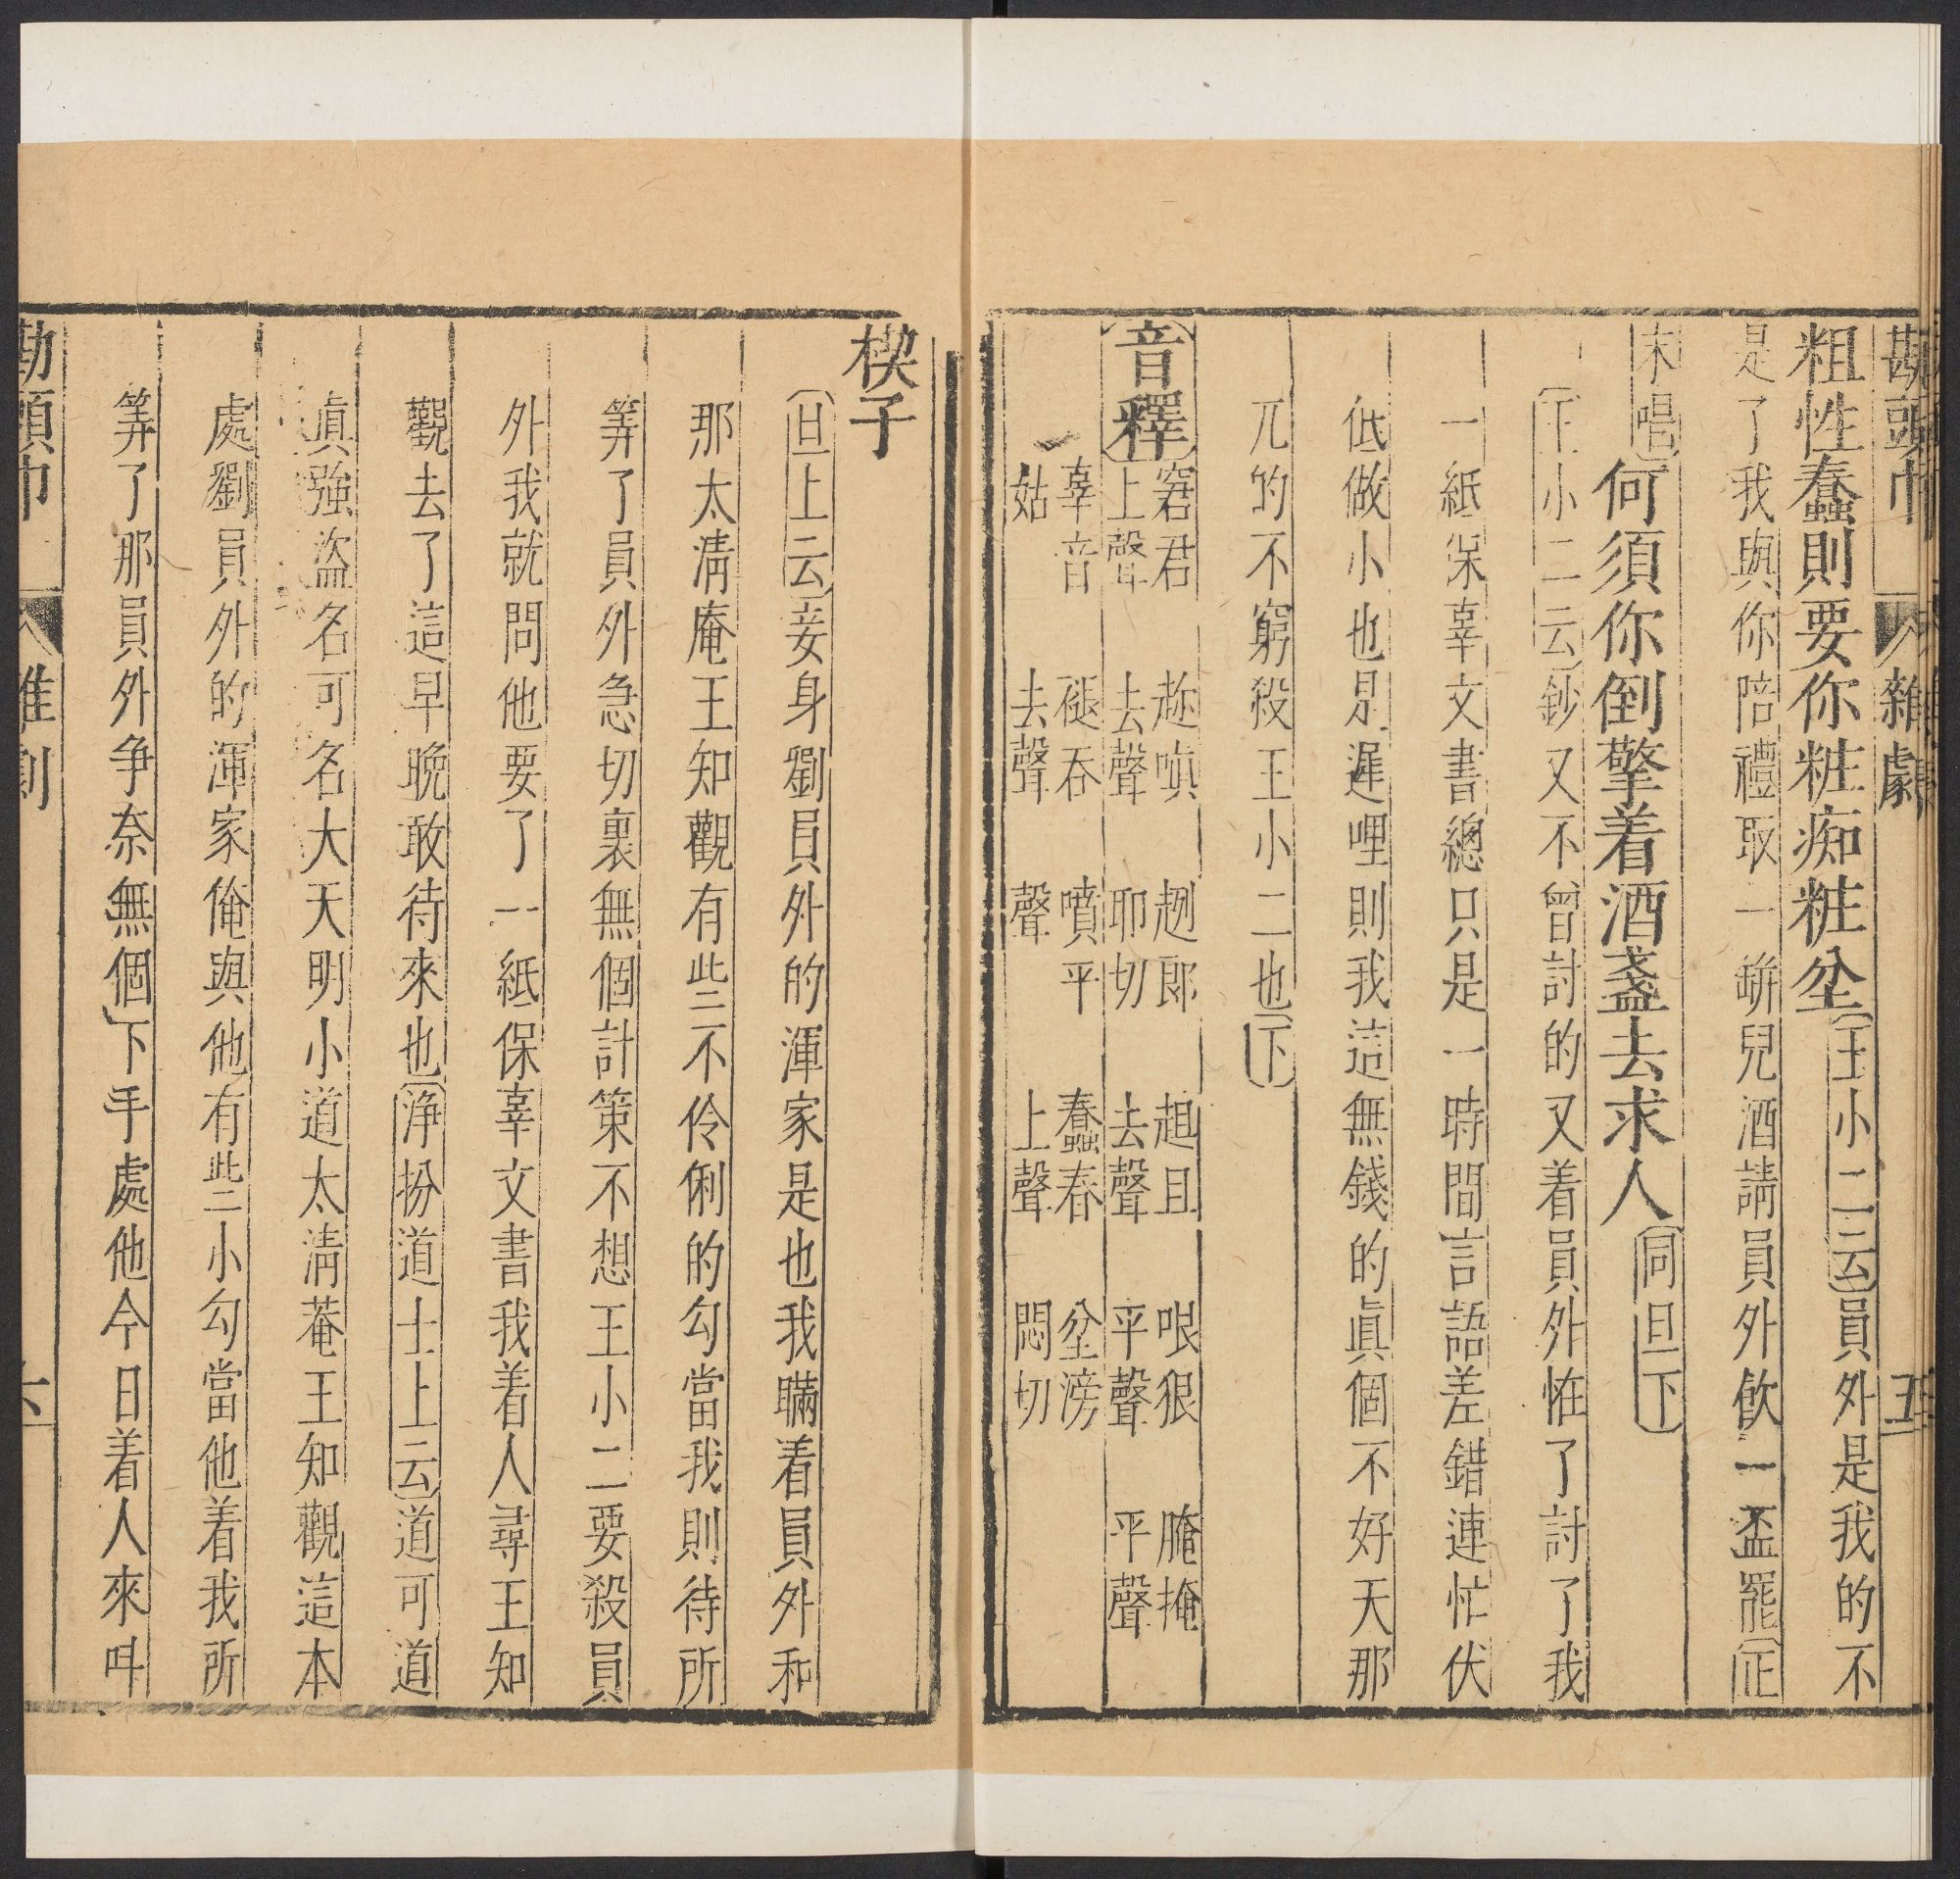 勘頭巾 雜劇 五
粗性蠢則要你粧痴粧坌(王小二云)員外是我的不
是了我與你陪禮取一缾兒酒請員外飲一盃罷(正
末唱)何須你倒擎着酒盞去求人(同旦下)
(下小二云)鈔又不曾討的又着員外恠了討了我
一紙保辜文書總只是一時間言語差錯連忙伏
低做小也是遲哩則我這無錢的眞個不好天那
兀的不窮殺王小二也(下)
(音釋)窘君上聲 趂嗔去聲 趔郎耶切 趄且去聲 哏狠平聲 腌掩平聲
辜音姑 褪吞去聲 噴平聲 蠢春上聲 坌滂悶切
楔子
(旦上云)妾身劉員外的渾家是也我瞞着員外和
那太淸庵王知觀有些不伶俐的勾當我則待所
筭了員外急切裏無個計策不想王小二要殺員
外我就問他要了一紙保辜文書我着人尋王知
觀去了這早晚敢待來也(淨扮道士上云)道可道
眞強盜名可名大天明小道太淸菴王知觀這本
處劉員外的渾家俺與他有些小勾當他着我所
筭了那員外争奈無個下手處他今日着人來呌
勘頭巾 雜劇 六